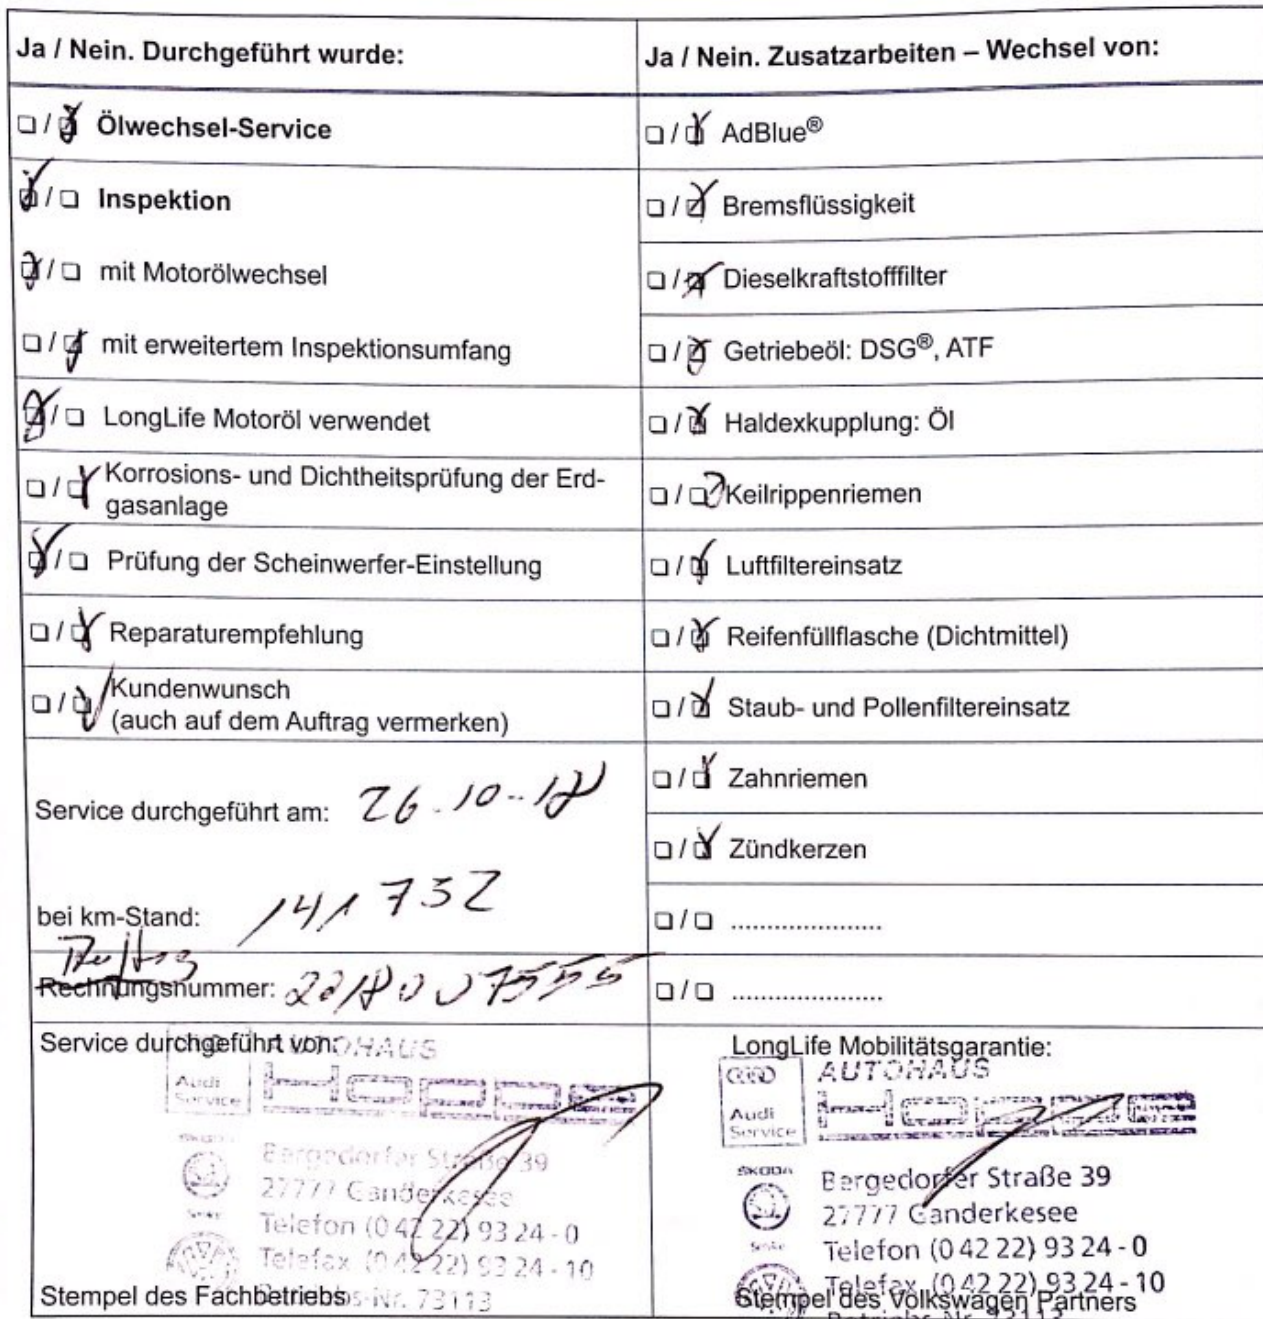 Ja / Nein. Durchgeführt wurde:
☐ / ☒ Ölwechsel-Service
☒ / ☐ Inspektion
☒ / ☐ mit Motorölwechsel
☐ / ☒ mit erweitertem Inspektionsumfang
☒ / ☐ LongLife Motoröl verwendet
☐ / ☒ Korrosions- und Dichtheitsprüfung der Erd-
gasanlage
☒ / ☐ Prüfung der Scheinwerfer-Einstellung
☐ / ☒ Reparaturempfehlung
☐ / ☒ Kundenwunsch
(auch auf dem Auftrag vermerken)
Service durchgeführt am: 26.10-18
bei km-Stand: 141 732
Rechnungsnummer: 2218007555
Service durchgeführt von:
AUTOHAUS
Audi
Service
ŠKODA
Bergedorfer Straße 39
27777 Ganderkesee
Telefon (0 42 22) 93 24 - 0
Telefax (0 42 22) 93 24 - 10
Betriebs-Nr. 73113
Stempel des Fachbetriebs
Ja / Nein. Zusatzarbeiten – Wechsel von:
☐ / ☒ AdBlue®
☐ / ☒ Bremsflüssigkeit
☐ / ☒ Dieselkraftstofffilter
☐ / ☒ Getriebeöl: DSG®, ATF
☐ / ☒ Haldexkupplung: Öl
☐ / ☒ Keilrippenriemen
☐ / ☒ Luftfiltereinsatz
☐ / ☒ Reifenfüllflasche (Dichtmittel)
☐ / ☒ Staub- und Pollenfiltereinsatz
☐ / ☒ Zahnriemen
☐ / ☒ Zündkerzen
☐ / ☐ .....................
☐ / ☐ .....................
LongLife Mobilitätsgarantie:
AUTOHAUS
Audi
Service
ŠKODA
Bergedorfer Straße 39
27777 Ganderkesee
Service
Telefon (0 42 22) 93 24 - 0
Telefax (0 42 22) 93 24 - 10
Stempel des Volkswagen Partners
Betriebs-Nr. 73113